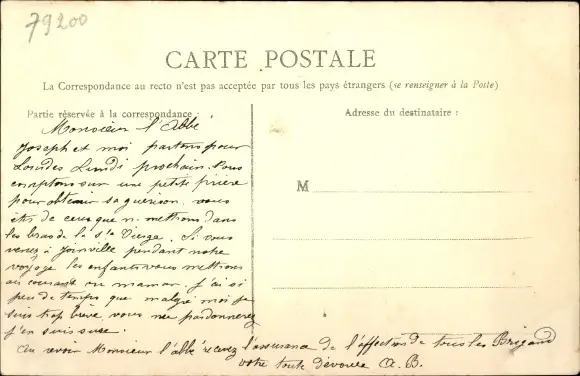 79200
CARTE POSTALE
La Correspondance au recto n'est pas acceptée par tous les pays étrangers (se renseigner à la Poste)
Partie réservée à la correspondance :
Adresse du destinataire :
M
Monsieur l'Abbé
Joseph et moi partons pour
Lourdes Lundi prochain. Nous
comptons sur une petite prière
pour obtenir sa guérison. vous
êtes de ceux que n. mettons dans
les bras de la Ste Vierge. Si vous
venez à Joinville pendant notre
voyage les enfants vous mettrons
au courant ou maman. j'ai si
peu de temps que malgré moi je
suis trop brève, vous me pardonnerez
j'en suis sûre.
Au revoir Monsieur l'abbé recevez l'assurance de l'affection de tous les Brigand
votre toute dévouée A. B.